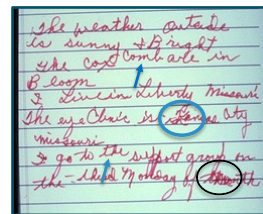 The weather outside
is sunny & Bright
the coxcomb are in
Bloom
I Live in Liberty Missouri
The eye Chair is in Kansas City
Missouri
I go to the support group on
the third Monday of the month